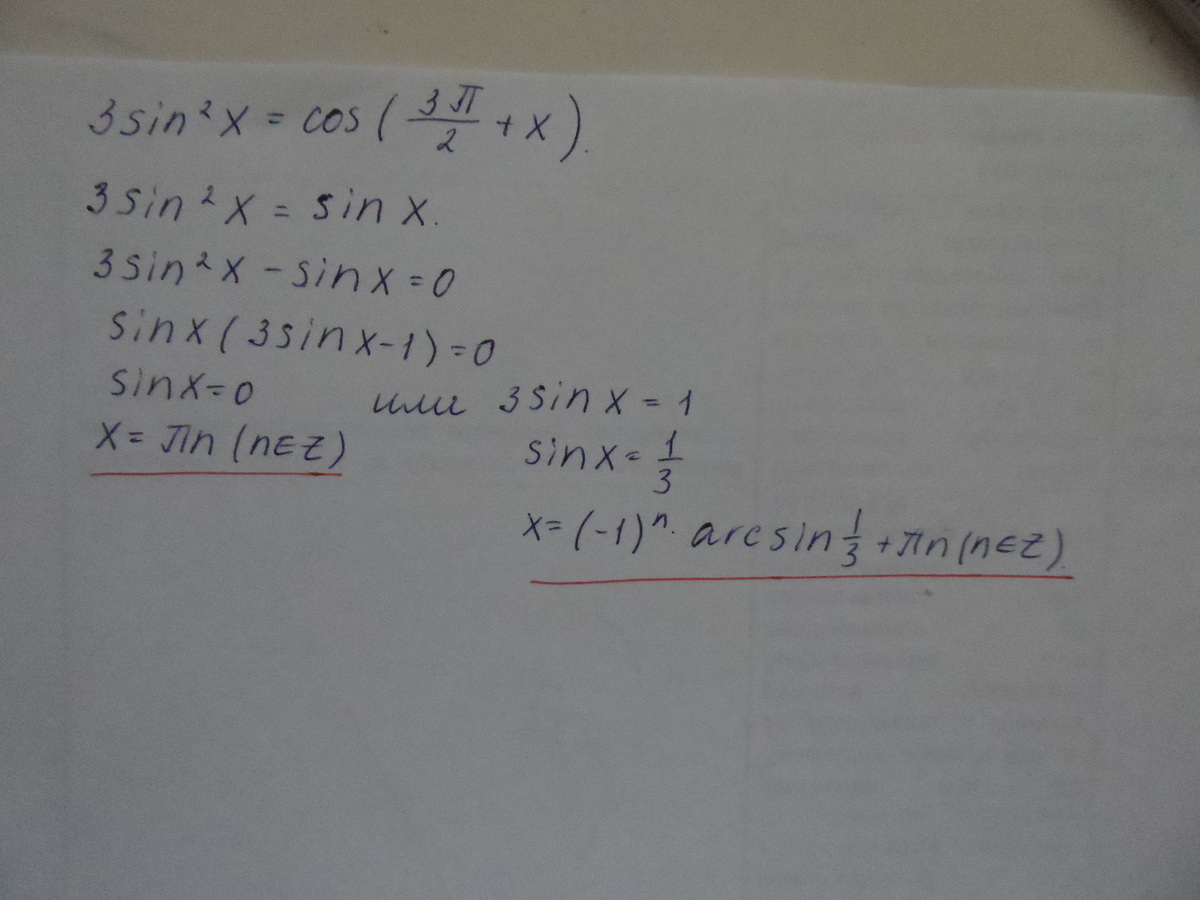 3sin²x = cos(3π/2 + x).
3sin²x = sin x.
3sin²x - sinx = 0
sinx(3sinx-1)=0
sinx=0 или 3sinx = 1
x= πn (n∈Z) sinx= 1/3
x= (-1)ⁿ· arcsin 1/3 + πn (n∈Z).